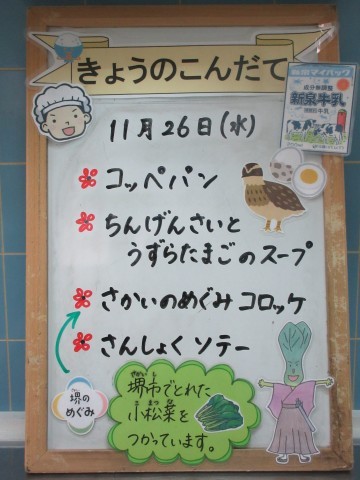 きょうのこんだて
11月26日(水)
コッペパン
ちんげんさいと
うずらたまごのスープ
さかいのめぐみ コロッケ
さんしょく ソテー
堺の
めぐみ
さかいし
堺市でとれた
こまつな
小松菜を
つかっています。
成分無調整
新泉牛乳